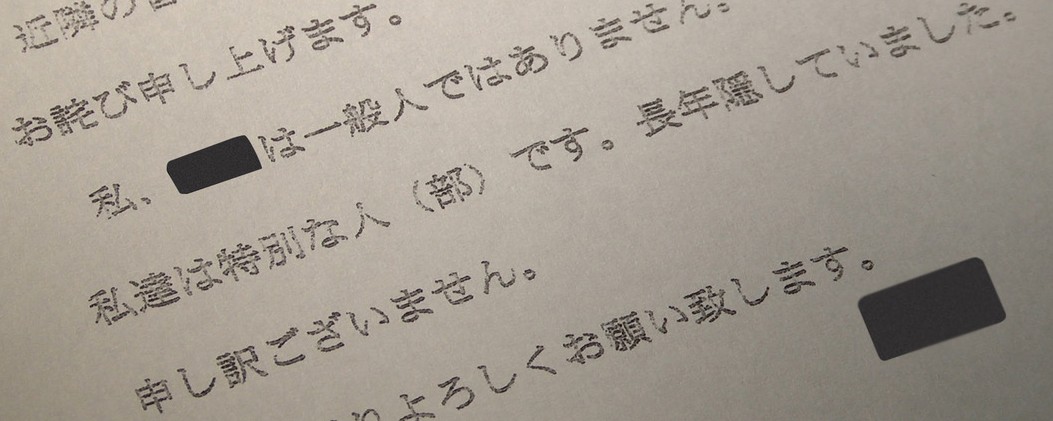 近隣の皆
お詫び申し上げます。
私、は一般人ではありません。
私達は特別な人（部）です。長年隠していました。
申し訳ございません。
りよろしくお願い致します。